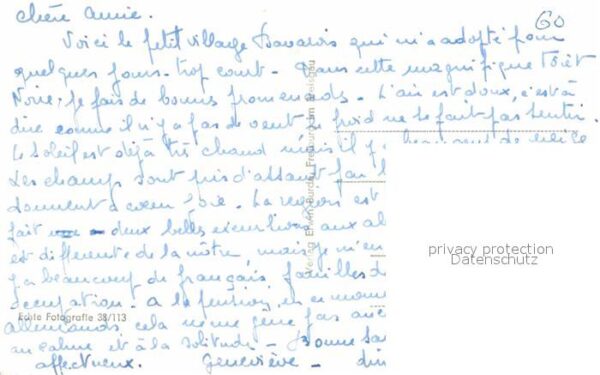 60
chère amie.
Voici le petit village Bavarois qui m'a adopté pour
quelques jours. trop court - Dans cette magnifique Forêt
Noire, je fais de bonnes promenades. L'air est doux, c'est à
dire comme il n'y a pas de vent le froid ne se fait pas sentir.
Le soleil est déjà très chaud mais il y a beaucoup de neige
Les champs sont pris d'assaut par
donnent à cœur joie. La région est
fait deux belles excursions aux
est différente de la nôtre, mais je m'en
y a beaucoup de français, familles d
occupation. a la pension, en ce mom
allemands, cela même gêne pas
au calme et à la solitude - Bonne
affectueux. Geneviève -
Verlag Erwin Burda, Freiburg im Breisgau
Echte Fotografie 38/113
privacy protection
Datenschutz